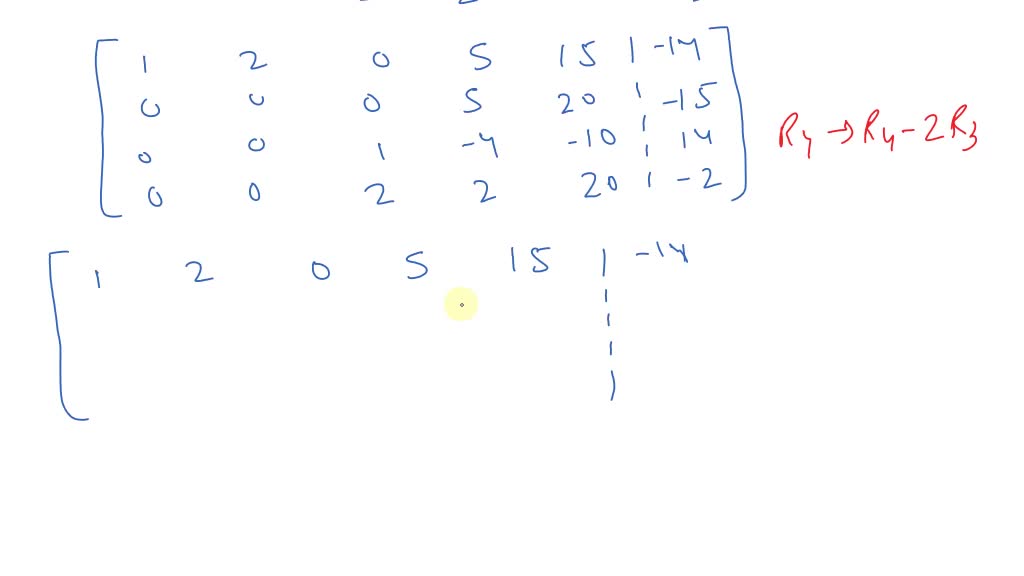 1 2 0 5 15 | -14
0 0 0 5 20 | -15
0 0 1 -4 -10 | 14
0 0 2 2 20 | -2
R4 → R4 - 2R3
1 2 0 5 15 | -14